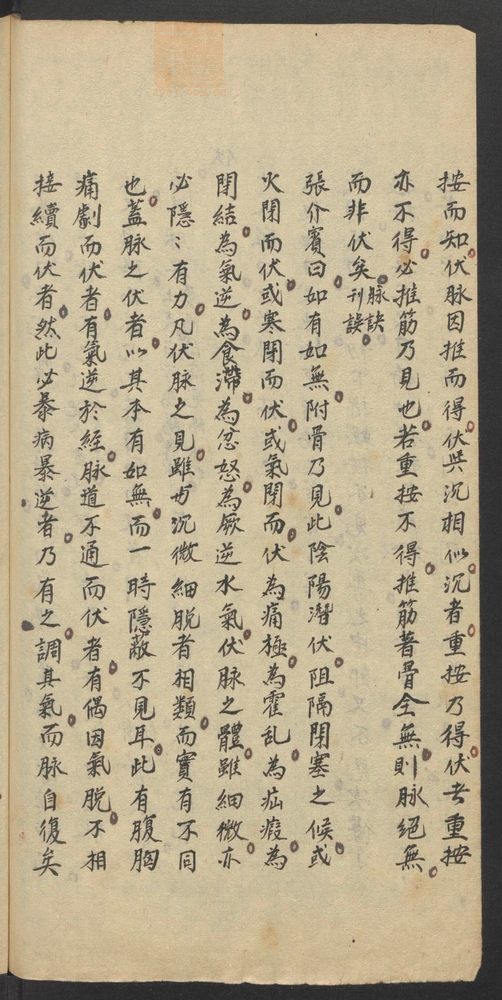 按而知伏脉因推而得伏与沉相似沉者重按乃得伏者重按
亦不得必推筋乃見也若重按不得推筋著骨全無則脉絕無
而非伏矣脉訣刊誤
張介賓曰如有如無附骨乃見此陰陽潛伏阻隔閉塞之候或
火閉而伏或寒閉而伏或氣閉而伏為痛極為霍乱為疝瘕為
閉結為氣逆為食滯為忿怒為厥逆水氣伏脉之體雖細微亦
必隱〻有力凡伏脉之見雖与沉微細脱者相類而實有不同
也蓋脉之伏者以其本有如無而一時隱蔽不見耳此有腹胸
痛劇而伏者有氣逆於經脉道不通而伏者有偶因氣脱不相
接續而伏者然此必暴病暴逆者乃有之調其氣而脉自復矣